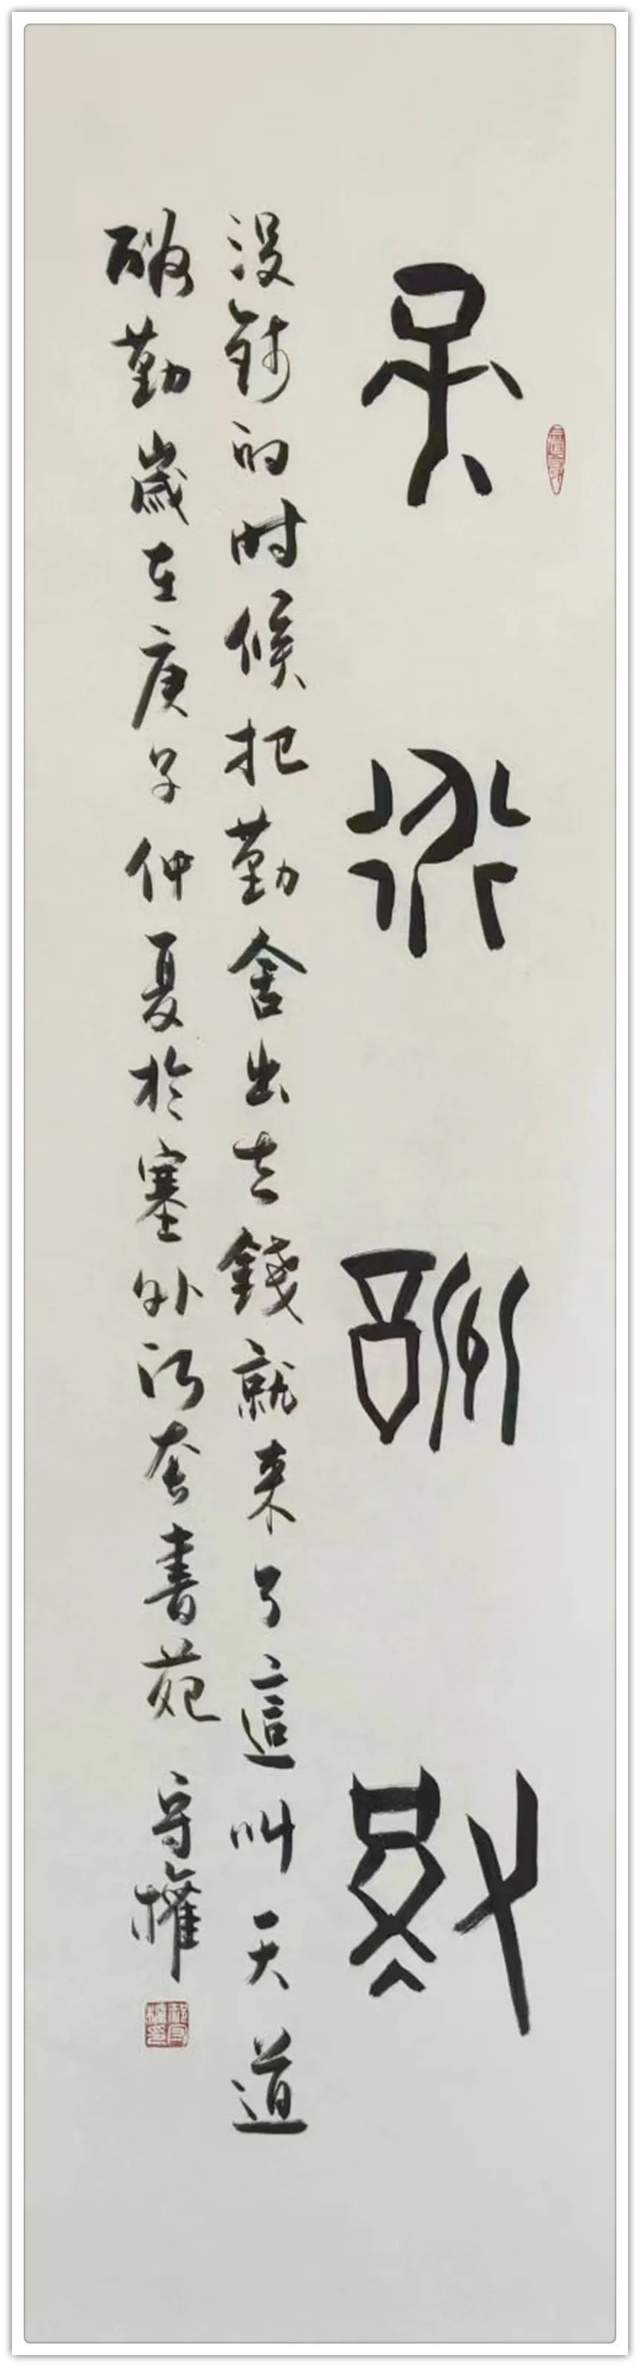 天道酬勤
没錢的时候把勤舍出去錢就来了這叫天道
酬勤歲在庚子仲夏於塞外河套書苑 守權